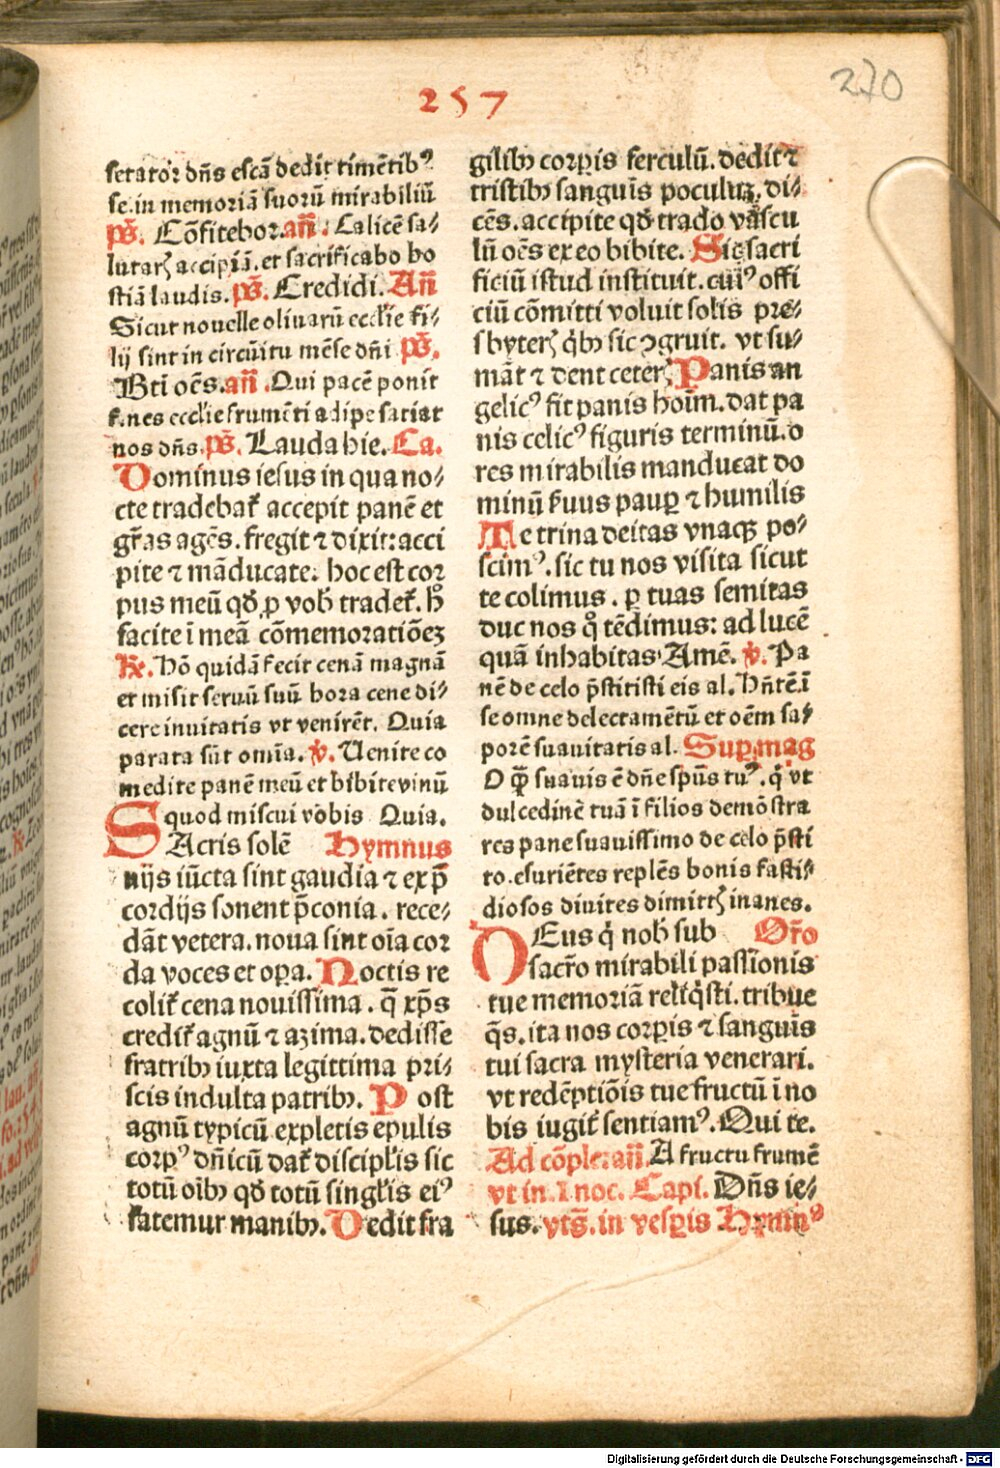 270
257
serator dn̄s escā dedit timētibꝰ
se.in memoriā suorū mirabiliū
pꝭ̄. Cōfitebor.an̄. Calicē sa⸗
lutarꝭ accipiā.et sacrificabo ho
stiā laudis.pꝭ̄. Credidi. An̄
Sicut nouelle oliuarū ecclīe fi⸗
lij sint in circūitu mēse dn̄i pꝭ̄.
Bt̄i oēs.an̄. Qui pacē ponit
fines ecclīe frumēti adipe satiat
nos dn̄s.pꝭ̄. Lauda hie. Ca.
Dominus iesus in qua no⸗
cte tradebat᷑ accepit panē et
gr̄as agēs.fregit ⁊ dixit: acci
pite ⁊ māducate. hoc est cor
pus meū qd̄ ꝓ vob̄ tradet᷑. hͦ
facite ī meā cōmemoratiōeꝫ
R̄. Hō quidā fecit cenā magnā
et misit seruū suū hora cene di⸗
cere inuitatis vt venirēt. Quia
parata sūt om̄ia. v̄. Uenite co
medite panē meū et bibite vinū
quod miscui vobis Quia.
SAcris solē Hymnus
nijs iūcta sint gaudia ⁊ ex p̄
cordijs sonent p̄conia. rece⸗
dāt vetera.noua sint oīa cor
da voces et oꝑa. Noctis re
colit᷑ cena nouissima. q̄ xp̄s
credit᷑ agnū ⁊ azima.dedisse
fratribꝫ iuxta legittima pri⸗
scis indulta patribꝫ. Post
agnū typicū expletis epulis
corpꝰ dn̄icū dat᷑ discipl̄is sic
totū oībꝫ qd̄ totū singl̄is eiꝰ
fatemur manibꝫ. Dedit fra
gilibꝫ corꝑis ferculū. dedit ⁊
tristibꝫ sanguīs poculuꝫ. di⸗
cēs.accipite qd̄ trado vascu
lū oēs ex eo bibite. Sic sacri
ficiū istud instituit.cuiꝰ offi
ciū cōmitti voluit solis pre⸗
sbyterꝭ q̇bꝫ sic ꝯgruit. vt su⸗
māt ⁊ dent ceterꝭ Panis an
gelicꝰ fit panis hoīm.dat pa
nis celicꝰ figuris terminū.o
res mirabilis manducat do
minū ẜuus pauꝑ ⁊ humilis
Te trina deitas vnaqꝫ po⸗
scimꝰ. sic tu nos visita sicut
te colimus. ꝑ tuas semitas
duc nos qͦ tēdimus: ad lucē
quā inhabitas Amē. v̄. Pa
nē de celo p̄stitisti eis al. Hn̄tē.ī
se omne delectamētū et oēm sa⸗
porē suauitatis al. Suꝑ.mag
O qꝫ̄ suauis ē dn̄e spūs tuꝰ. q̇ vt
dulcedinē tuā ī filios demōstra
res pane suauissimo de celo p̄sti
to.esuriētes replēs bonis fasti⸗
diosos diuites dimittꝭ inanes.
DEus q̇ nob̄ sub Or̄o
sacr̄o mirabili passīonis
tue memoriā relīq̇sti. tribue
q̄s. ita nos corꝑis ⁊ sanguīs
tui sacra mysteria venerari.
vt redēptiōis tue fructū ī no
bis iugit᷑ sentiamꝰ. Qui te.
Ad cōple.an̄. A fructu frumē
vt in. I noc. Capi. Dn̄s ie⸗
sus. vts̄. in vesꝑis Hymnꝰ
Digitalisierung gefördert durch die Deutsche Forschungsgemeinschaft - DFG